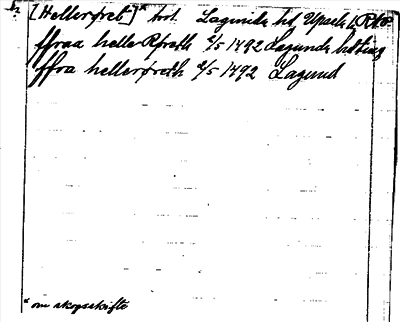 [Hellerøret]* bol. Lagunda hd, Uppsala l.
ffraa hellerøfreth 2/5 1492 Lagunda hdsting
ffra hellerøreth 2/5 1492 Lagund
* om skogsskifte